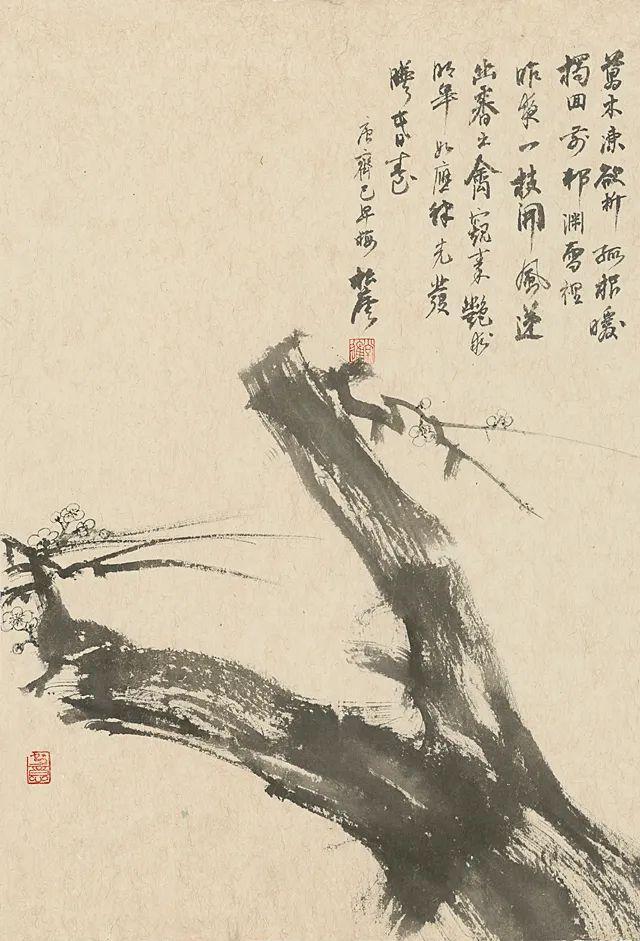 萬木凍欲折孤根暖
獨回前邨深雪裡
昨夜一枝開風遞
幽香出禽窺素艷來
明年如應律先發
映春臺
唐齊己早梅